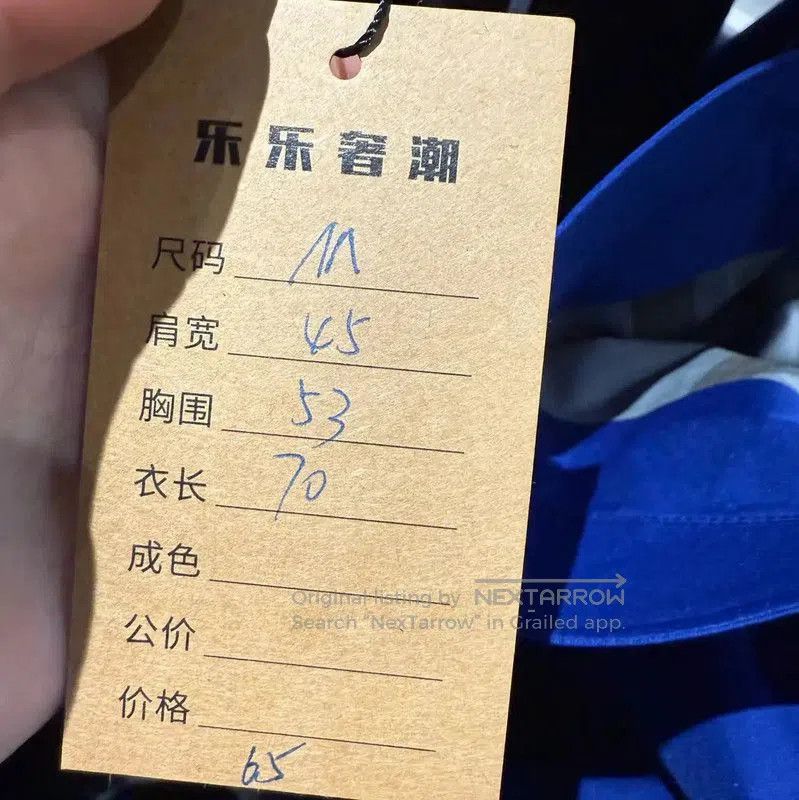 乐乐奢潮
尺码 M
肩宽 45
胸围 53
衣长 70
成色
公价
价格
65
Original listing by NEXTARROW
Search "NexTarrow" in Grailed app.